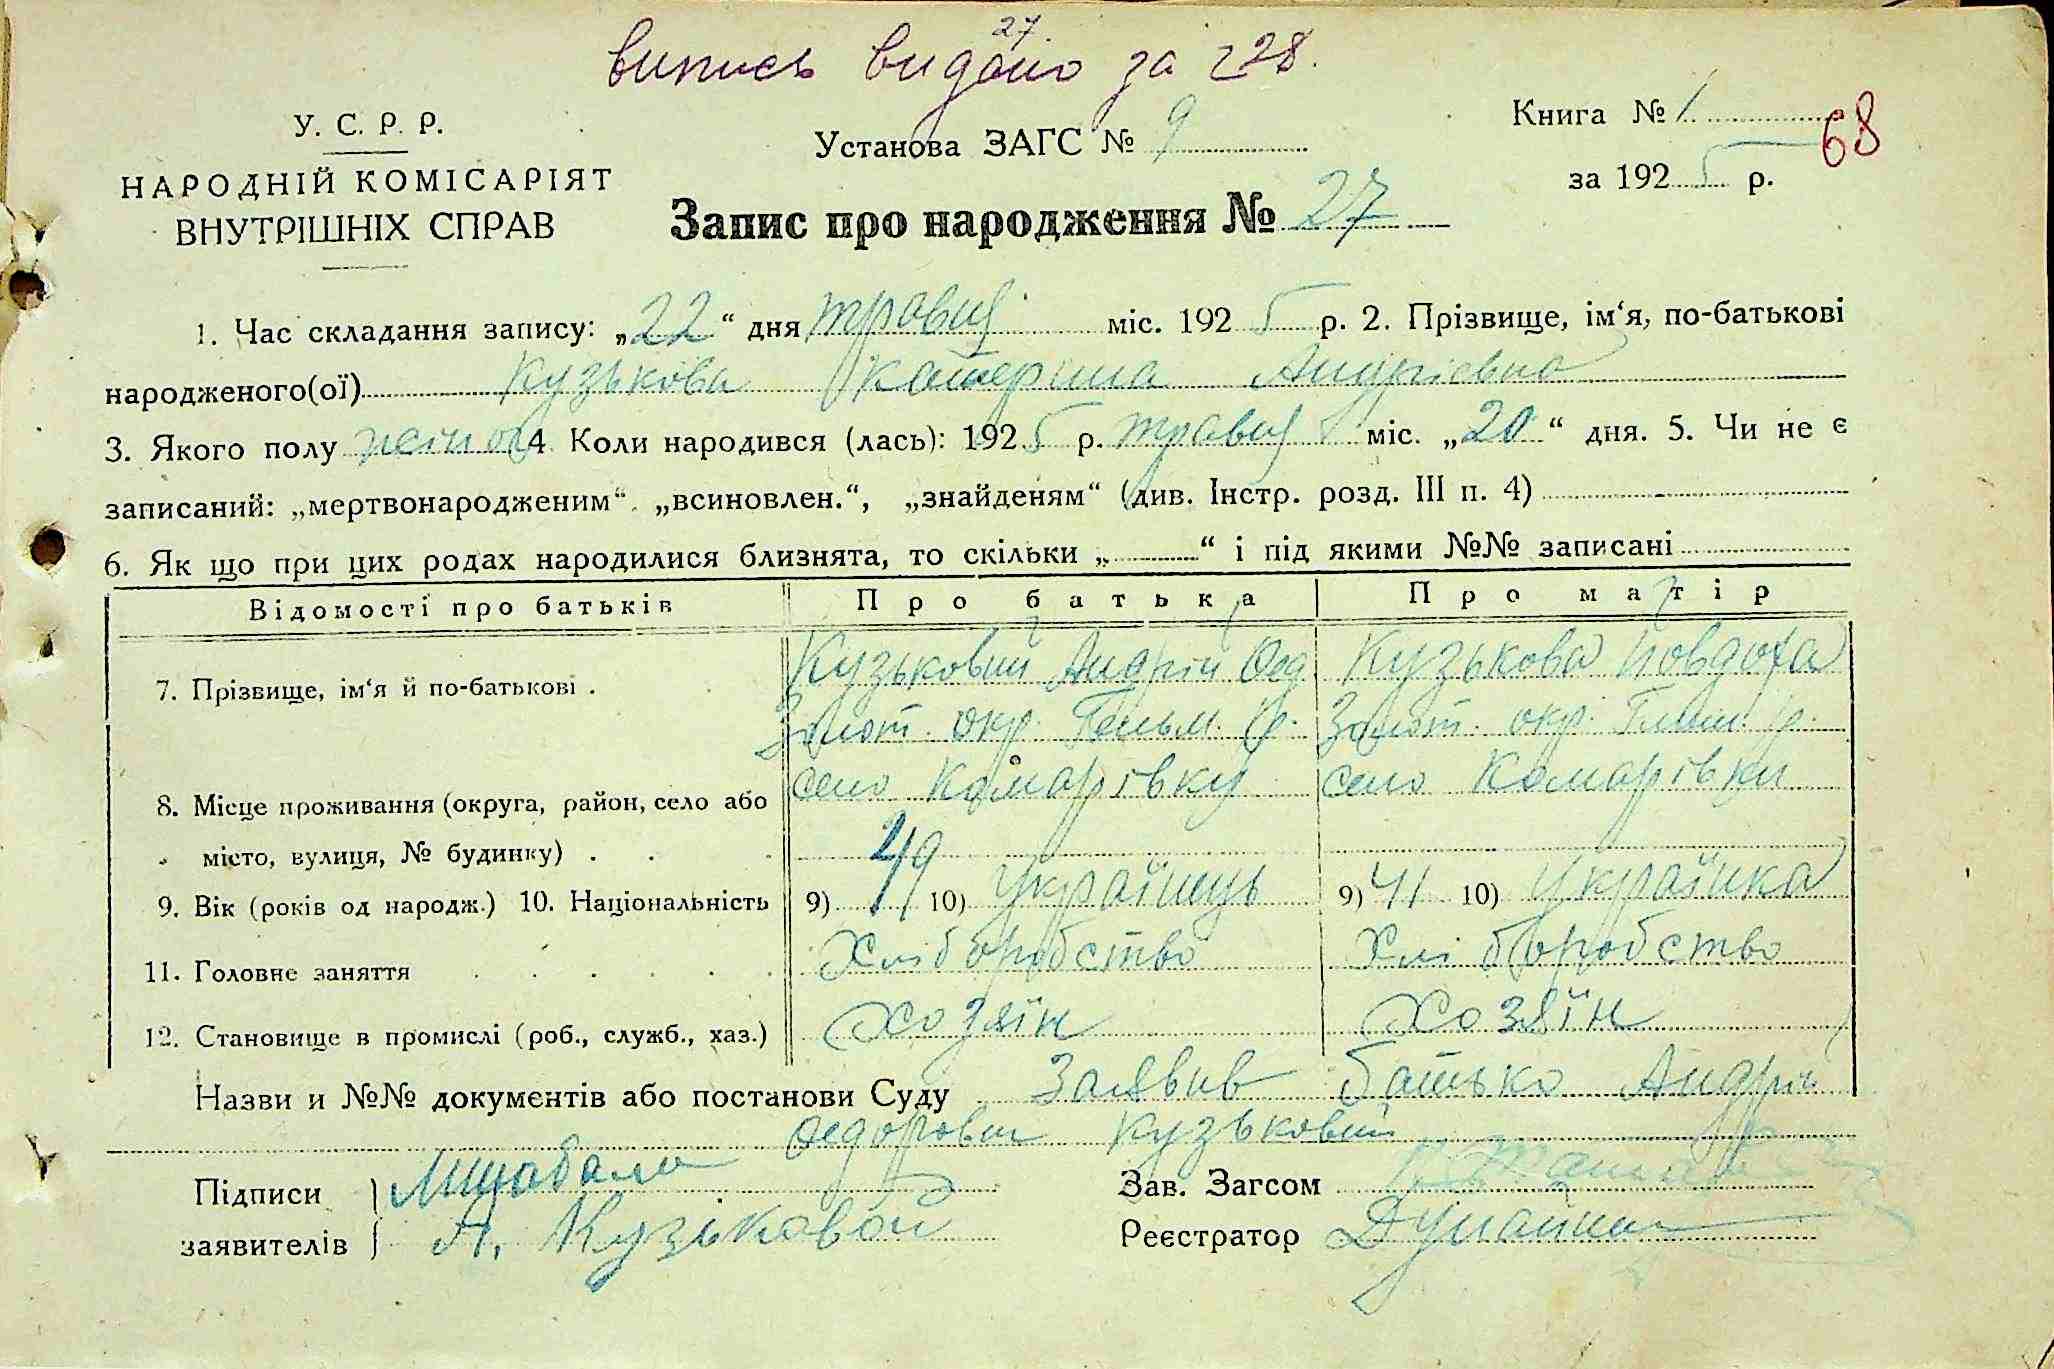 27.
випись видано за 228.
У. С. Р. Р.
НАРОДНІЙ КОМІСАРІЯТ
ВНУТРІШНІХ СПРАВ
Установа ЗАГС № 9
Запис про народження № 27
Книга № 1
68
за 1925 р.
1. Час складання запису: „22“ дня травця міс. 1925 р. 2. Прізвище, ім‘я, по-батькові
народженого(ої) Кузькова Катерина Андріевна
3. Якого полу жіноч 4. Коли народився (лась): 1925 р. травця міс. „20“ дня. 5. Чи не є
записаний: „мертвонародженим“, „всиновлен.“, „знайденям“ (див. Інстр. розд. III п. 4)
6. Як що при цих родах народилися близнята, то скільки „ “ і під якими №№ записані
Відомості про батьків Про батька Про матір
7. Прізвище, ім‘я й по-батькові . Кузьковий Андрій Фед Кузькова Повдоха
Золот. окр. Гельм. р. Золот. окр. р.
8. Місце проживання (округа, район, село або село Комарівку село Комарівки
місто, вулиця, № будинку) . .
9. Вік (років од народж.) 10. Національність 9) 49 10) Українець 9) 41 10) Українка
11. Головне заняття Хліборобство Хліборобство
12. Становище в промислі (роб., служб., хаз.) Хозяїн Хозяїн
Назви и №№ документів або постанови Суду Заявив батько Андрій
Федорович Кузьковий
Підписи
заявителів А. Кузьковой
Зав. Загсом
Реєстратор